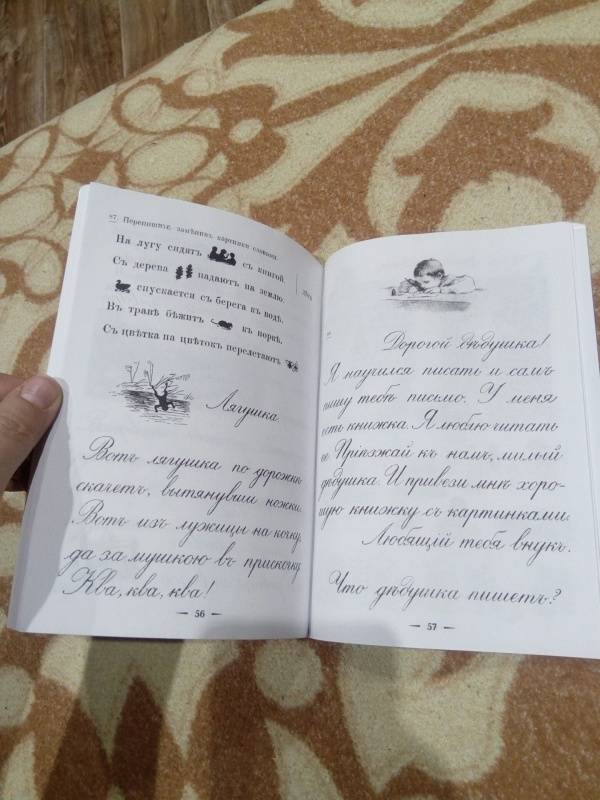 57. Перепишите, замѣнивъ картинки словами.
На лугу сидятъ съ книгой.
Съ дерева падаютъ на землю.
спускается съ берега къ водѣ.
Въ травѣ бѣжитъ къ норкѣ.
Съ цвѣтка на цвѣтокъ перелетаютъ
Лягушка.
Вотъ лягушка по дорожкѣ
скачетъ, вытянувши ножки.
Вотъ изъ лужицы на кочку,
да за мушкою въ прискочку.
Ква, ква, ква!
— 56 —
Дорогой дѣдушка!
Я научился писать и самъ
пишу тебѣ письмо. У меня
есть книжка. Я люблю читать
ее. Пріѣзжай къ намъ, милый
дѣдушка. И привези мнѣ хоро-
шую книжку съ картинками.
Любящій тебя внукъ.
Что дѣдушка пишетъ?
— 57 —